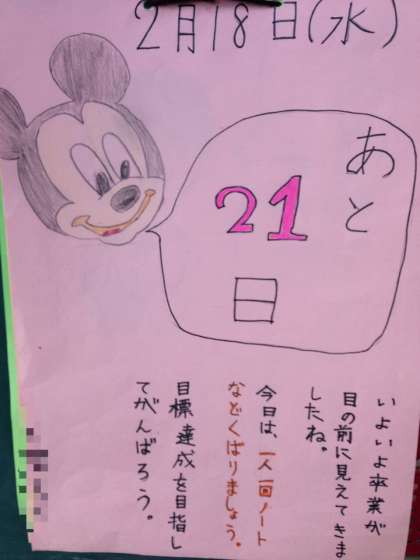 2月18日(水)
あと
21
日
いよいよ卒業が
目の前に見えてきま
したね。
今日は、一人一回ノート
などくばりましょう。
目標達成を目指し
てがんばろう。